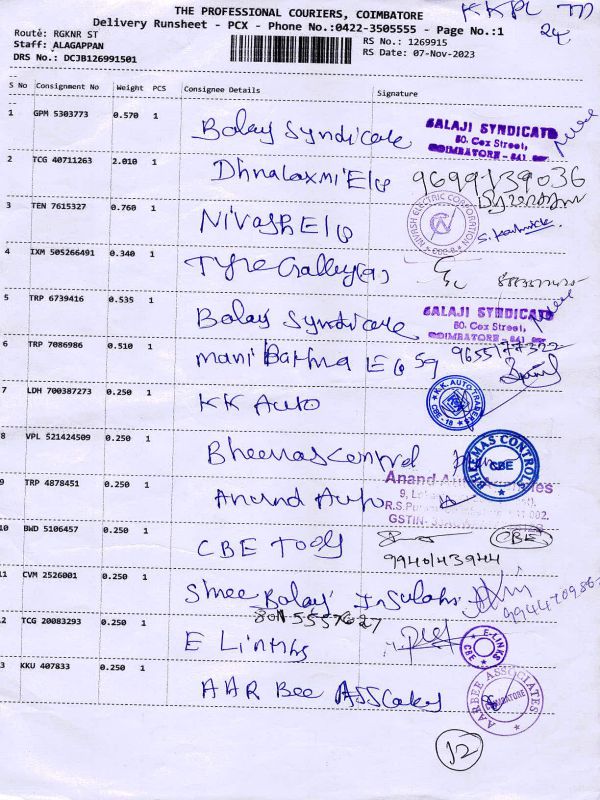 THE PROFESSIONAL COURIERS, COIMBATORE
KKPL
Delivery Runsheet - PCX - Phone No.:0422-3505555 - Page No.:1
24
Route: RGKNR ST
RS No.: 1269915
Staff: ALAGAPPAN
RS Date: 07-Nov-2023
DRS No.: DCJB126991501
S No Consignment No Weight PCS Consignee Details Signature
1 GPM 5303773 0.570 1 Balaji Syndicate BALAJI SYNDICATE
80. Cox Street,
COIMBATORE - 641
2 TCG 40711263 2.010 1 Dhnalaxmi Ele 9699139036
3 TEN 7615327 0.760 1 Nivash Ele NIVASH ELECTRIC CORPORATION
S. Karthick
4 IXM 505266491 0.340 1 Tyre Galley(a)
5 TRP 6739416 0.535 1 Balaji Syndicate BALAJI SYNDICATE
80. Cox Street,
COIMBATORE - 641
6 TRP 7086986 0.510 1 mani Barma Ele 9655177322
7 LDH 700387273 0.250 1 KK Auto K.K. AUTO TRADERS CBE - 18
8 VPL 521424509 0.250 1 Bheemas Control BHEEMAS CONTROLS CBE
9 TRP 4878451 0.250 1 Anand Auto Anand
GSTIN-
10 BWD 5106457 0.250 1 CBE Tools CBE
9940143944
11 CVM 2526001 0.250 1 Shree Balaji Insulahi
12 TCG 20083293 0.250 1 E Linkks E-LINKS CBE
13 KKU 407833 0.250 1 AAR Bee Asscates AARBEE ASSOCIATES COIMBATORE
12